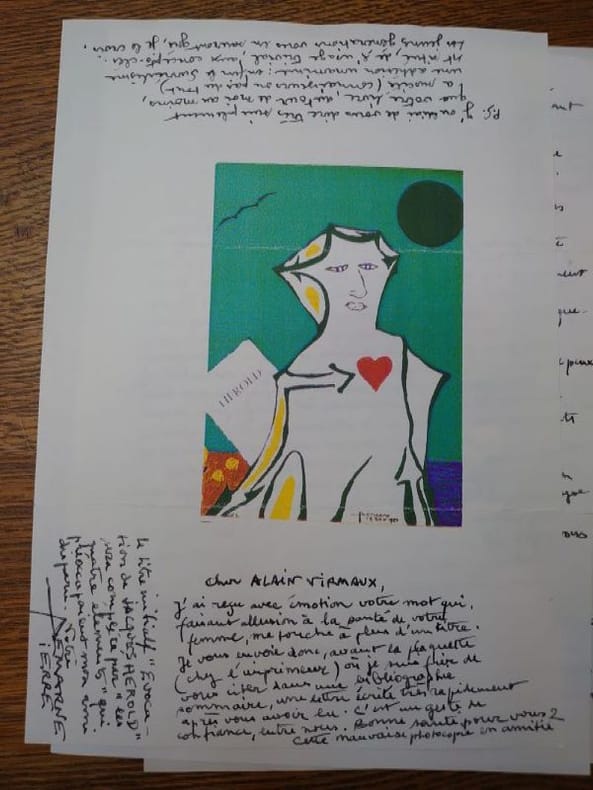 P.S. J'oubliais de vous dire très simplement
que votre livre, autour de moi au moins,
a suscité (connaisseurs ou pas du tout)
une adhésion unanime : enfin le Surréalisme
est situé, de l'usage trivial, aux concepts-clés.
Les jeunes générations vous en sauront gré, je le crois
HEROLD
Cher ALAIN VIRMAUX,
j'ai reçu avec émotion votre mot qui,
faisant allusion à la santé de votre
femme, me touche à plus d'un titre.
Je vous envoie donc, avant la plaquette
(chez l'imprimeur) où je suis fier de
vous citer dans une bibliographie
sommaire, une lettre écrite très rapidement
après vous avoir lu. C'est un geste de
confiance, entre nous. Bonne santé pour vous 2
Cette mauvaise photocopie en amitié
le titre initial "Evoca-
tion de JACQUES HEROLD"
sera complété par "les
quatre éléments" qui
préoccupaient mon ami
disparu. Votre
DEMARNE
PIERRE